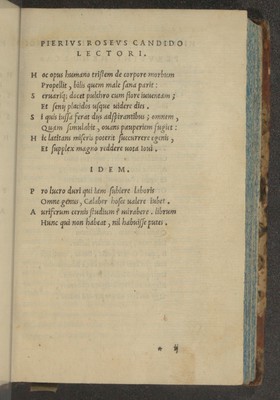 PIERIVS ROSEVS CANDIDO
LECTORI.
H oc opus humano tristem de corpore morbum
Propellit, bilis quem male sana parit:
S eruariq; docet pulchro cum flore iuuentam;
Et senij placidos usque uidere dies.
S i quis iussa ferat dijs adspirantibus; omnem,
Quam simulabit, ouans pauperiem fugiet:
H ic latitans miseris poterit succurrere egenis,
Et supplex magno reddere uota Ioui.
IDEM.
P ro lucro duri qui iam subiere laboris
Omne genus, Calaber hosce ualere iubet.
A uriferum cernis studium & mirabere. librum
Hunc qui non habeat, nil habuisse putes.
* ij